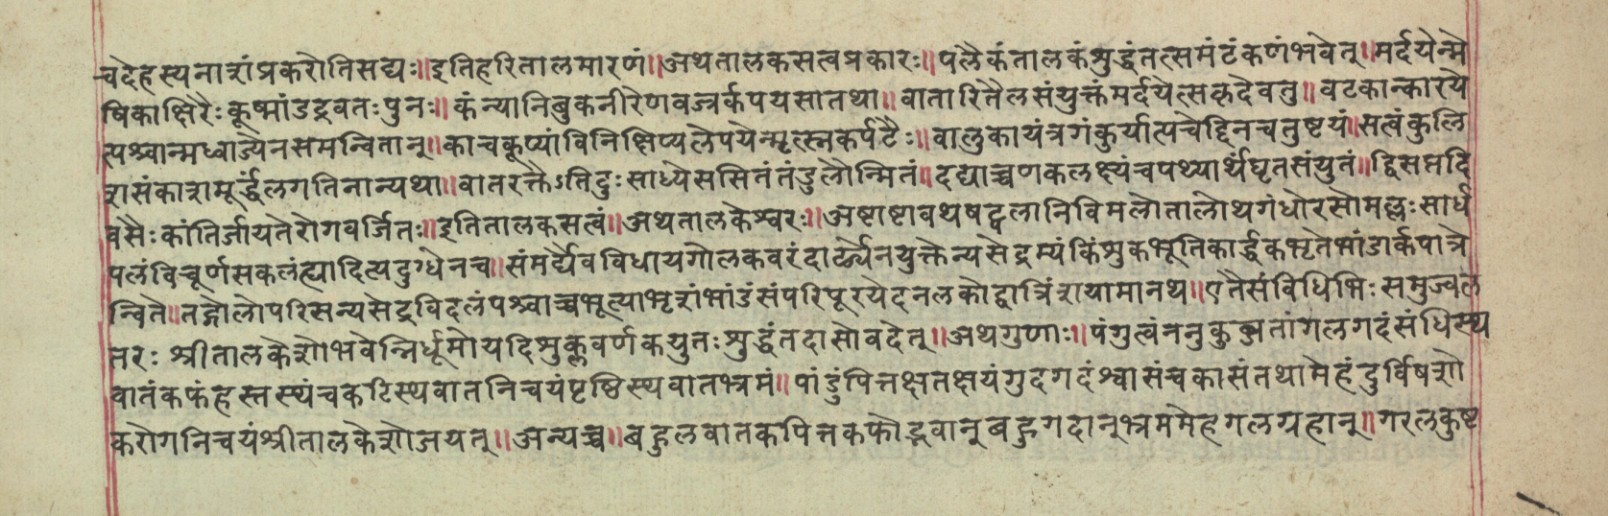 चदेहस्यनाशंप्रकरोतिसद्यः॥इतिहरितालमारणं॥अथतालकसत्वप्रकारः॥पलैकंतालकंशुद्धंतत्समंटंकणंभवेत्॥मर्दयेन्मे
षिकाक्षिरैःकूष्मांडद्रवतःपुनः॥कंन्यानिबुकनीरेणवज्रर्कपयसातथा॥वातारितैलसंयुक्तंमर्दयेत्सकृदैवतु॥वटकान्कारये
त्पश्चान्मध्वाज्येनसमन्वितान्॥काचकूप्यांविनिक्षिप्यलेपयेन्मृत्स्नकर्पटैः॥वालुकायंत्रगंकुर्यात्पचेद्दिनचतुष्टयं॥सत्वंकुलि
शसंकाशमूर्द्धलगतिनान्यथा॥वातरक्तैऽतिदुःसाध्येससितंतंडुलोन्मितं॥दद्याच्चणकलक्ष्यंचपथ्यार्थंघृतसंयुतं॥द्विसप्तदि
वसैःकांतिर्जायतेरोगवर्जितः॥इतितालकसत्वं॥अथतालकेश्वरः॥अष्टाष्टावथषट्पलानिविमलोतालोथगंधोरसोमल्लःसार्ध
पलंविचूर्णसकलंह्यादित्यदुग्धेनच॥संमर्द्यैवविधायगोलकवरंदार्ढ्येनयुक्तेन्यसेद्रम्यंकिंशुकभूतिकार्द्धकभृतेभांडार्कपात्रे
न्विते॥तद्गोलोपरिसन्यसेद्रविदलंपश्चाच्चभूत्याभृशंभांडंसंपरिपूरयेद्नलकोद्वात्रिंशयामानथ॥एतैर्सविधिभिःसमुज्वल
तरः श्रीतालकेशोभवेन्निर्धूमोयदिशुक्लवर्णकयुतःशुद्धंतदासोवदेत्॥अथगुणाः॥पंगुत्वंननुकुब्जतांगलगदंसंधिस्थ
वातंकफंहस्तस्यंचकटिस्थवातनिचयंपृष्ठिस्थवातभ्रमं॥पांडुंपित्तक्षतक्षयंगुदगदंश्वासंचकासंतथामेहंदुर्विषशो
करोगनिचयंश्रीतालकेशोजयत्॥अन्यच्च॥बहुलवातकपित्तकफोद्भवान्बहुगदान्भ्रममेहगलग्रहान्॥गरलकुष्ट